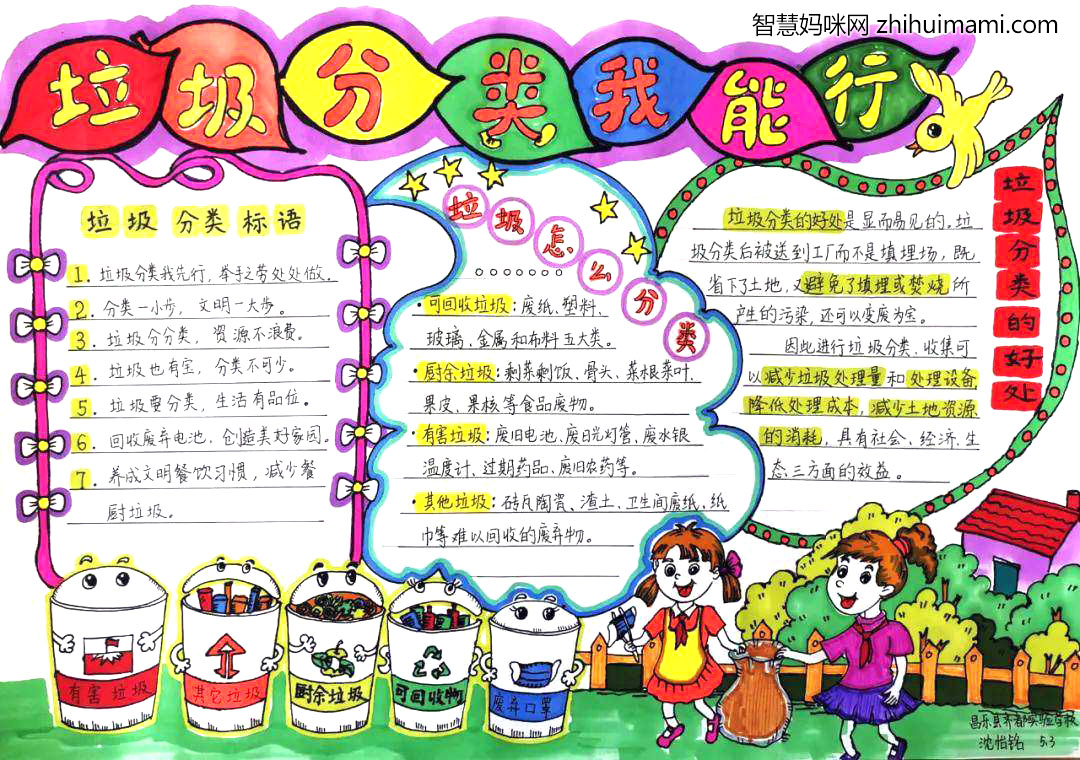 智慧妈咪网 zhihuimami.com
垃圾分类我能行
垃圾分类标语
1. 垃圾分类我先行，举手之劳处处做.
2. 分类一小步，文明一大步。
3. 垃圾分分类，资源不浪费。
4. 垃圾也有宝，分类不可少。
5. 垃圾要分类，生活有品位。
6. 回收废弃电池，创造美好家园。
7. 养成文明餐饮习惯，减少餐
厨垃圾。
垃圾怎么分类
·可回收垃圾：废纸、塑料、
玻璃、金属和布料五大类。
·厨余垃圾：剩菜剩饭、骨头、菜根菜叶、
果皮、果核等食品废物。
·有害垃圾：废旧电池、废日光灯管、废水银
温度计、过期药品、废旧农药等。
·其他垃圾：砖瓦陶瓷、渣土、卫生间废纸、纸
巾等难以回收的废弃物。
垃圾分类的好处
垃圾分类的好处是显而易见的。垃
圾分类后被送到工厂而不是填埋场，既
省下了土地，又避免了填埋或焚烧所
产生的污染，还可以变废为宝。
因此进行垃圾分类、收集可
以减少垃圾处理量和处理设备，
降低处理成本，减少土地资源
的消耗，具有社会、经济、生
态三方面的效益。
有害垃圾
其它垃圾
厨余垃圾
可回收物
废弃口罩
昌乐县齐都实验学校
沈怡铭 5.3